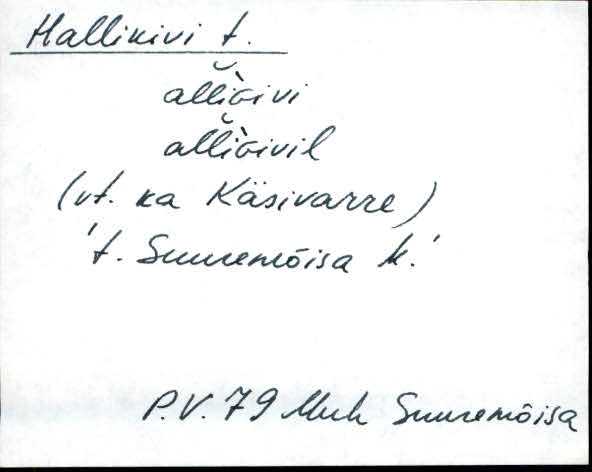 Hallikivi t.
all̆iɢ̀ivi
all̆iɢ̀ivil
(vt. ka Käsivarre)
't. Suuremõisa k.'
P.V. 79 Muh Suuremõisa